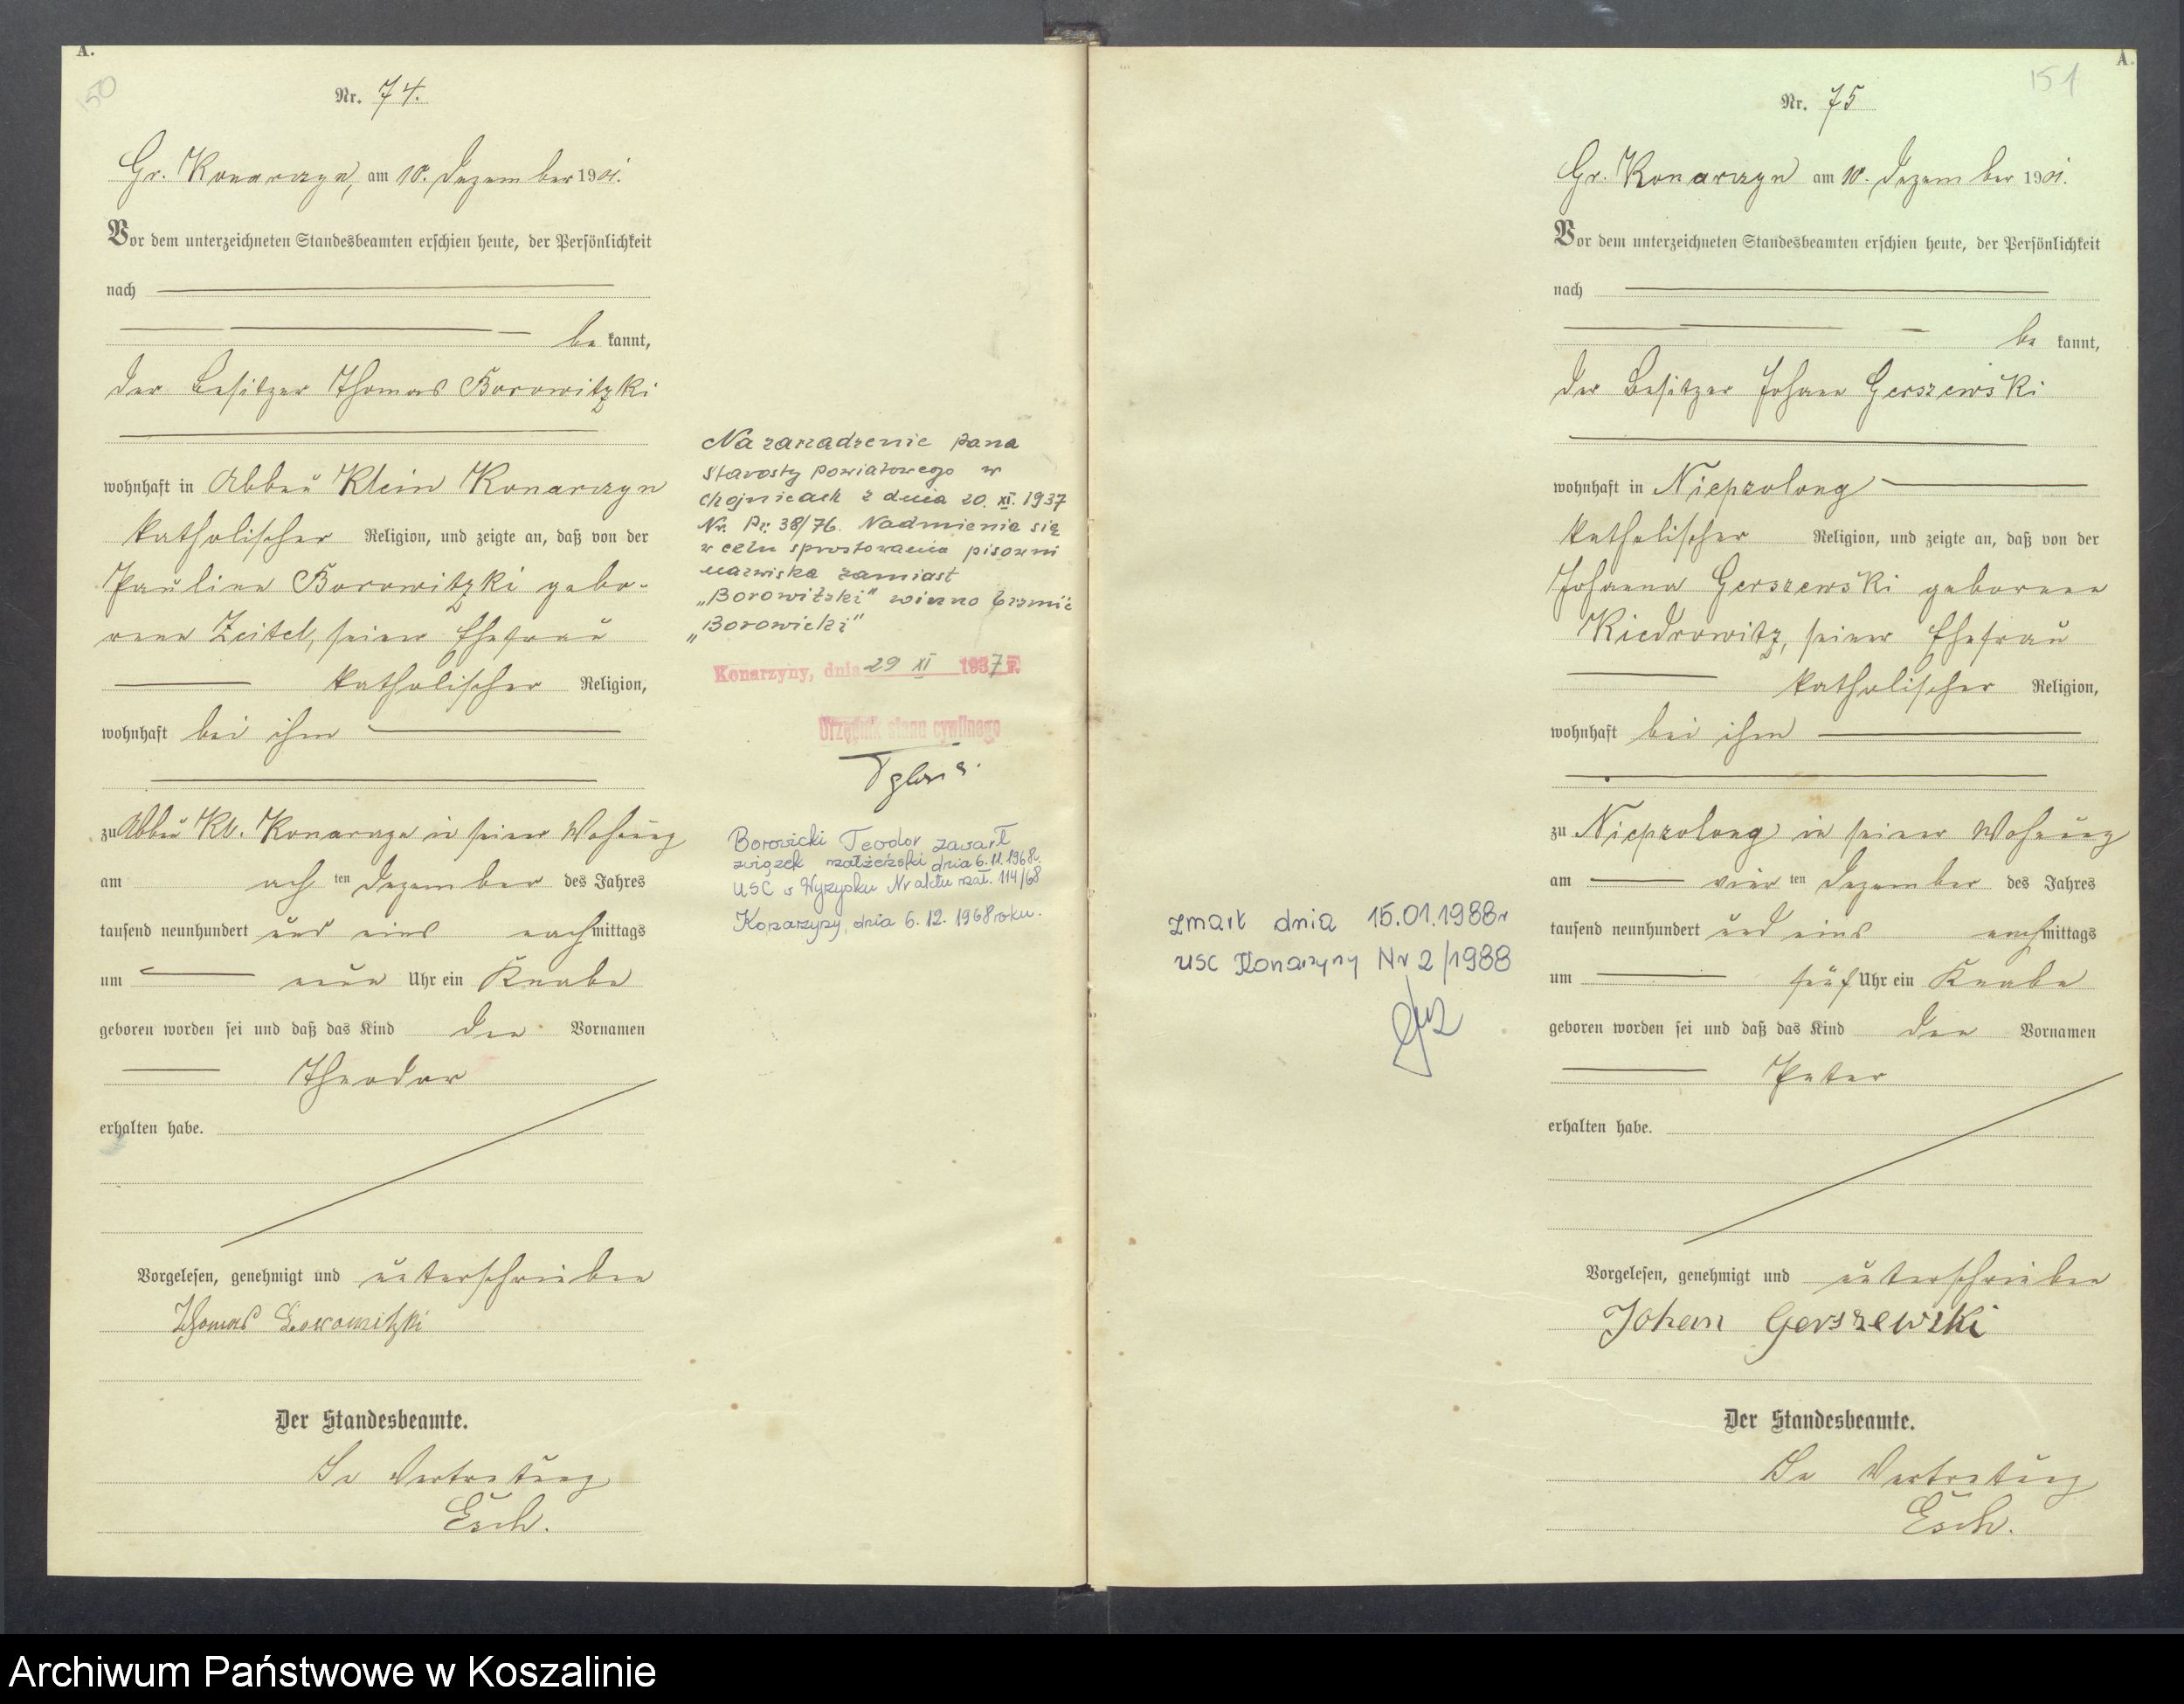 A.
150
Nr. 74.
Gr. Konarczyn, am 10. Dezember 1901.
Vor dem unterzeichneten Standesbeamten erschien heute, der Persönlichkeit
nach
be kannt,
der Besitzer Thomas Borowitzki
wohnhaft in Abbau Klein Konarczyn
katholischer Religion, und zeigte an, daß von der
Pauline Borowitzki gebo-
rene Zeitel, seiner Ehefrau
katholischer Religion,
wohnhaft bei ihm
zu Abbau Kl. Konarczyn in seiner Wohnung
am ach ten Dezember des Jahres
tausend neunhundert und eins nachmittags
um neun Uhr ein Knabe
geboren worden sei und daß das Kind den Vornamen
Theodor
erhalten habe.
Vorgelesen, genehmigt und unterschrieben
Thomas Borowitzki
Der Standesbeamte.
In Vertretung
Esch.
Na zarządzenie pana
Starosty Powiatowego w
Chojnicach z dnia 20. XI. 1937
Nr. Pr. 38/76. Nadmienia się
w celu sprostowania pisowni
nazwiska zamiast
„Borowitzki" winno brzmieć
„Borowicki"
Konarzyny, dnia 29 XI 1937 r.
Urzędnik stanu cywilnego
Borowicki Teodor zawarł
związek małżeński dnia 6.11.1968r.
USC w Wyrzysku Nr aktu mał. 114/68
Konarzyny, dnia 6. 12. 1968 roku.
A.
151
Nr. 75
Gr. Konarczyn am 10. Dezember 1901.
Vor dem unterzeichneten Standesbeamten erschien heute, der Persönlichkeit
nach
be kannt,
der Besitzer Johann Gerszewski
wohnhaft in Niepzolong
katholischer Religion, und zeigte an, daß von der
Johanna Gerszewski geborene
Kiedrowitz, seiner Ehefrau
katholischer Religion,
wohnhaft bei ihm
zu Niepzolong in seiner Wohnung
am vier ten Dezember des Jahres
tausend neunhundert und eins nachmittags
um fünf Uhr ein Knabe
geboren worden sei und daß das Kind den Vornamen
Peter
erhalten habe.
Vorgelesen, genehmigt und unterschrieben
Johan Gerszewski
Der Standesbeamte.
In Vertretung
Esch.
zmarł dnia 15.01.1988r
USC Konarzyny Nr 2/1988
Archiwum Państwowe w Koszalinie